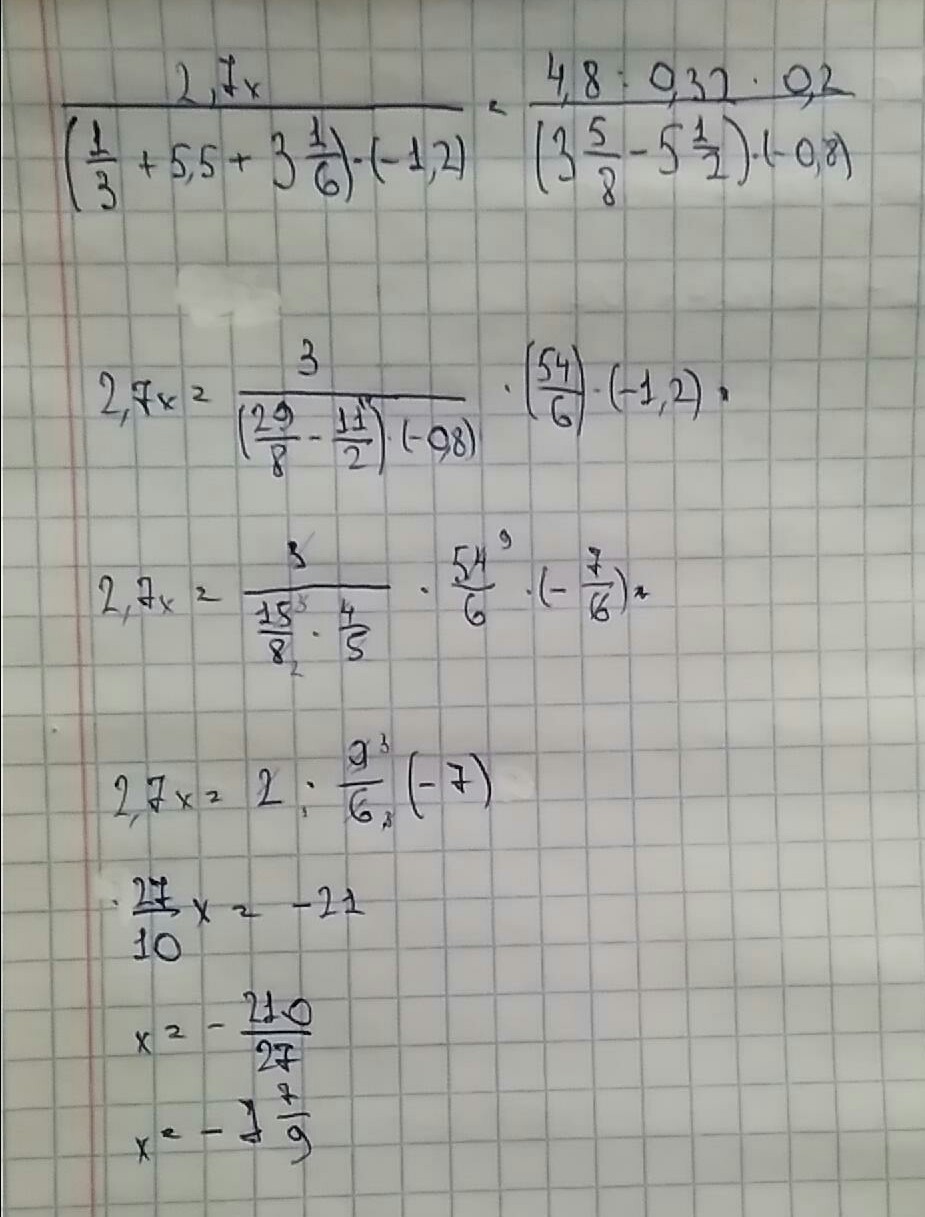 2,7x / ((1/3 + 5,5 + 3 1/6) · (-1,2)) = 4,8 : 0,32 · 0,2 / ((3 5/8 - 5 1/2) · (-0,8))
2,7x = 3 / ((29/8 - 11/2) · (-0,8)) · (54/6) · (-1,2) =
2,7x = 3 / (15/8 · 4/5) · 54/6 · (-7/6) =
2,7x = 2 · 9/6 (-7)
27/10 x = -21
x = - 210/27
x = - 7 7/9